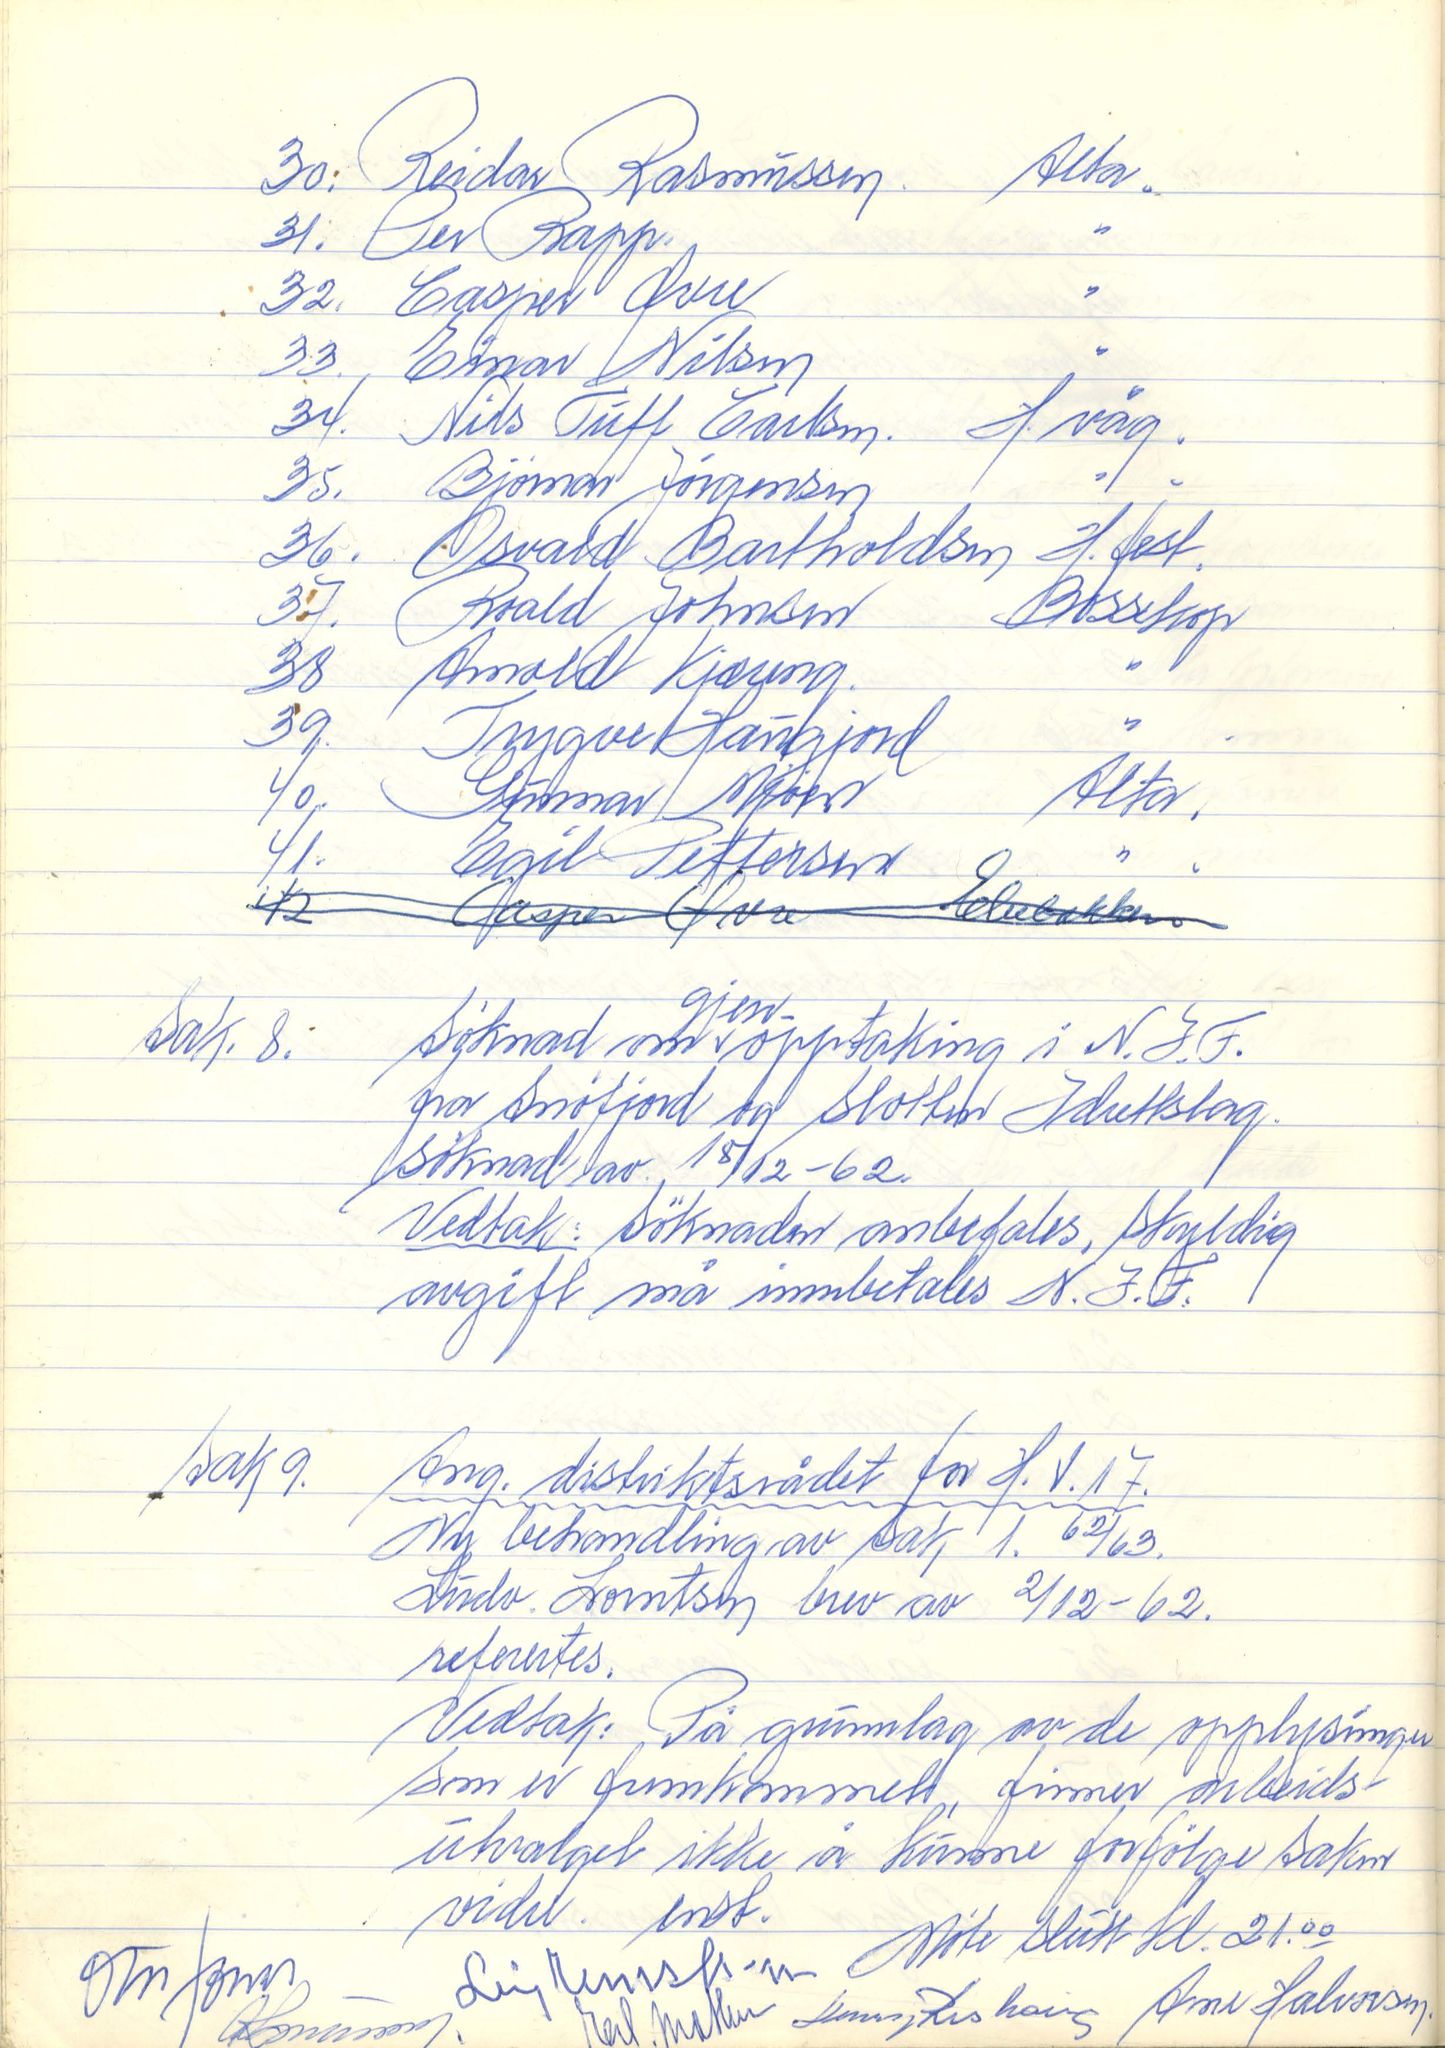 30. Reidar Rasmussen. Alta.
31. Per Rapp. "
32. Casper Øvre "
33. Einar Nilsen "
34. Nils Tuff Carlsen. H. våg.
35. Bjørnar Jörgensen " "
36. Osvald Bartholdsen H. fest.
37. Roald Johnsen Bossekop
38 Arnold Kjærung. "
39. Trygve Haugjord "
40. Gunnar Mjøen Alta.
41. Egil Pettersen " "
42 Casper Øvre Elvebakken
gjen-
Sak. 8. Söknad om opptaking i N.I.F.
fra Snöfjord og Slotten Idrettslag.
Söknad av 18/12-62.
Vedtak: Söknaden anbefales, skyldig
avgift må innbetales N.I.F.
Sak 9. Ang. distriktsrådet for H.V.17.
Ny behandling av sak 1. 62/63.
Ludv. Lorntsen brev av 2/12-62.
referertes.
Vedtak: På grunnlag av de opplysinger
som er fremkommet, finner arbeids-
utvalget ikke å kunne forfölge saken
videre. enst.
Möte slutt kl. 21.00
Arne Halvorsen.